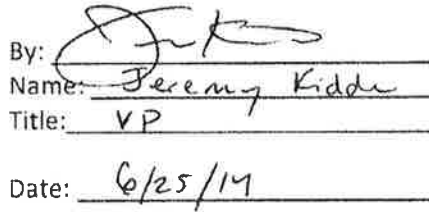 By:
Name: Jeremy Kidde
Title: VP
Date: 6/25/14